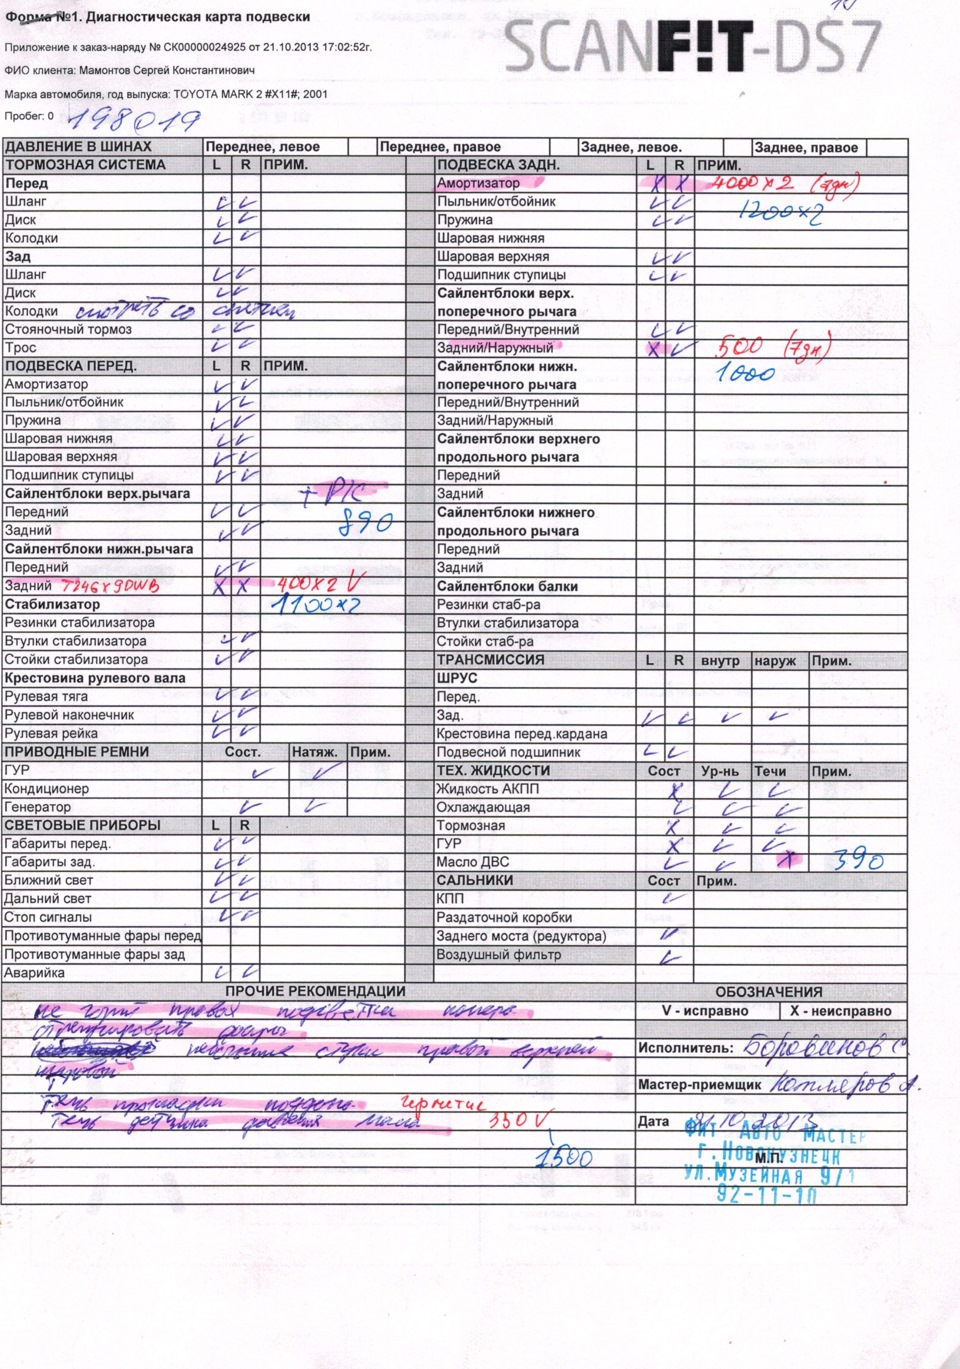 Форма №1. Диагностическая карта подвески
SCANF!T-DS7
Приложение к заказ-наряду № СК00000024925 от 21.10.2013 17:02:52г.
ФИО клиента: Мамонтов Сергей Константинович
Марка автомобиля, год выпуска: TOYOTA MARK 2 #X11#; 2001
Пробег: 0 198019
ДАВЛЕНИЕ В ШИНАХ Переднее, левое Переднее, правое Заднее, левое. Заднее, правое
ТОРМОЗНАЯ СИСТЕМА L R ПРИМ.
Перед
Шланг V V
Диск V V
Колодки V V
Зад
Шланг V V
Диск V V
Колодки смотреть со снятием
Стояночный тормоз V V
Трос V V
ПОДВЕСКА ПЕРЕД. L R ПРИМ.
Амортизатор V V
Пыльник/отбойник V V
Пружина V V
Шаровая нижняя V V
Шаровая верхняя V V
Подшипник ступицы V V
Сайлентблоки верх.рычага + РК
Передний V V 890
Задний V V
Сайлентблоки нижн.рычага
Передний V V
Задний T246x9DWB X X 400x2 V
Стабилизатор 1100x2
Резинки стабилизатора
Втулки стабилизатора V V
Стойки стабилизатора V V
Крестовина рулевого вала
Рулевая тяга V V
Рулевой наконечник V V
Рулевая рейка V V
ПРИВОДНЫЕ РЕМНИ Сост. Натяж. Прим.
ГУР V V
Кондиционер
Генератор V V
СВЕТОВЫЕ ПРИБОРЫ L R
Габариты перед. V V
Габариты зад. V V
Ближний свет V V
Дальний свет V V
Стоп сигналы V V
Противотуманные фары перед
Противотуманные фары зад
Аварийка V V
ПОДВЕСКА ЗАДН. L R ПРИМ.
Амортизатор X X 4000x2 (7дн)
Пыльник/отбойник V V 1200x2
Пружина V V
Шаровая нижняя
Шаровая верхняя V V
Подшипник ступицы V V
Сайлентблоки верх.
поперечного рычага
Передний/Внутренний V V
Задний/Наружный X V 500 (7дн)
Сайлентблоки нижн. 1000
поперечного рычага
Передний/Внутренний
Задний/Наружный
Сайлентблоки верхнего
продольного рычага
Передний
Задний
Сайлентблоки нижнего
продольного рычага
Передний
Задний
Сайлентблоки балки
Резинки стаб-ра
Втулки стабилизатора
Стойки стаб-ра
ТРАНСМИССИЯ L R внутр наруж Прим.
ШРУС
Перед.
Зад. V V V V
Крестовина перед.кардана
Подвесной подшипник V V
ТЕХ. ЖИДКОСТИ Сост Ур-нь Течи Прим.
Жидкость АКПП X V V
Охлаждающая V V V
Тормозная X V V
ГУР X V V
Масло ДВС V V X 390
САЛЬНИКИ Сост Прим.
КПП V
Раздаточной коробки
Заднего моста (редуктора) V
Воздушный фильтр V
ПРОЧИЕ РЕКОМЕНДАЦИИ
не горит правая подсветка номера
отрегулировать фары
небольшие стуки правой верхней
шаровой
Течь прокладки поддона герметик
Течь датчика давления масла 350 V
1500
ОБОЗНАЧЕНИЯ
V - исправно X - неисправно
Исполнитель: Боровинов С.
Мастер-приемщик Котляров А.
Дата 21.10.2013
М.П.
ФИТ АВТО МАСТЕР
г.НОВОКУЗНЕЦК
УЛ.МУЗЕЙНАЯ 9/1
92-11-10